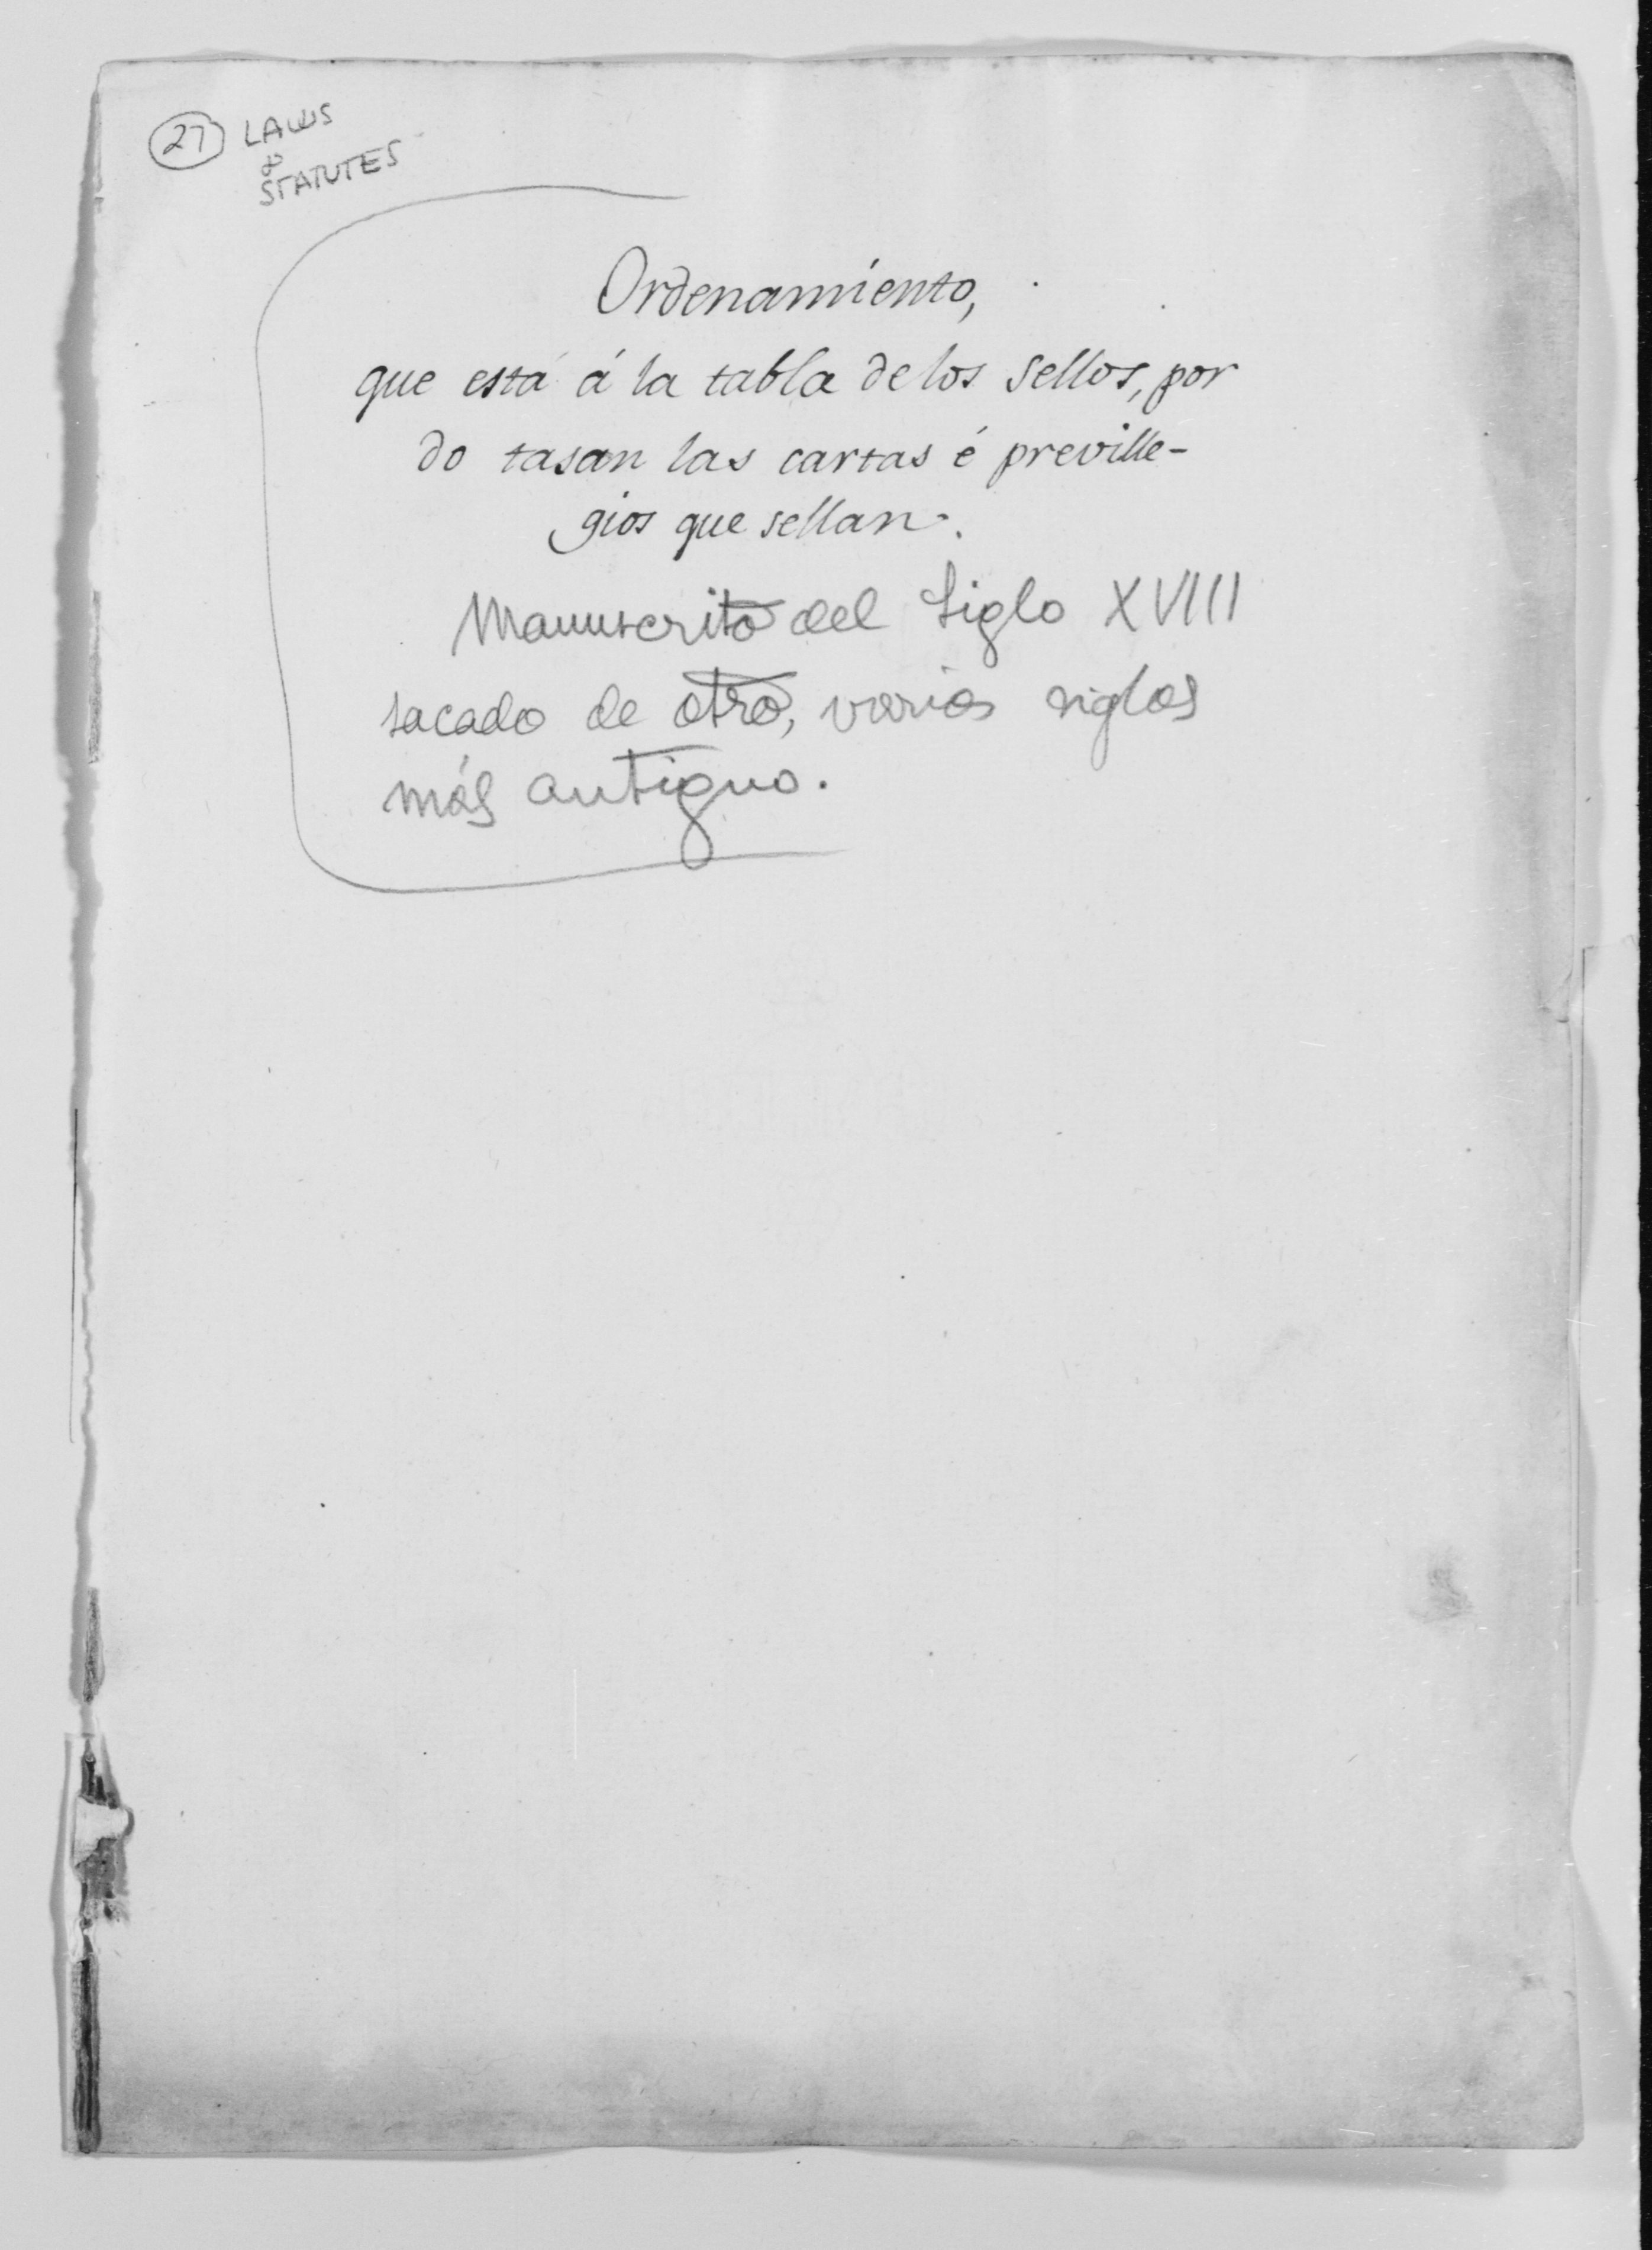 27 LAWS
&
STATUTES
Ordenamiento,
que está á la tabla de los sellos, por
do tasan las cartas é preville-
gios que sellan.
Manuscrito del siglo XVIII
sacado de otro, varios siglos
más antiguo.